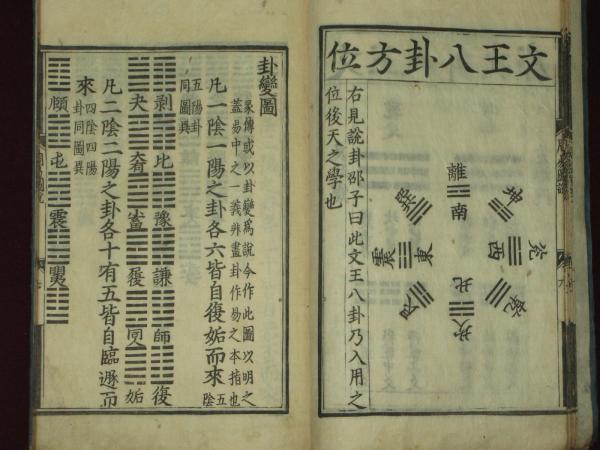 文王八卦方位
離
南
坤
兌
西
乾
坎
北
艮
震
東
巽
右見說卦邵子曰此文王八卦乃入用之
位後天之學也
卦變圖
彖傳或以卦變爲說今作此圖以明之
蓋易中之一義非畫卦作易之本指也
凡一陰一陽之卦各六皆自復姤而來五陰
五陽卦
同圖異
剝 比 豫 謙 師 復
夬 大有 小畜 履 同人 姤
凡二陰二陽之卦各十有五皆自臨遯而
來四陰四陽
卦同圖異
頤 屯 震 明夷